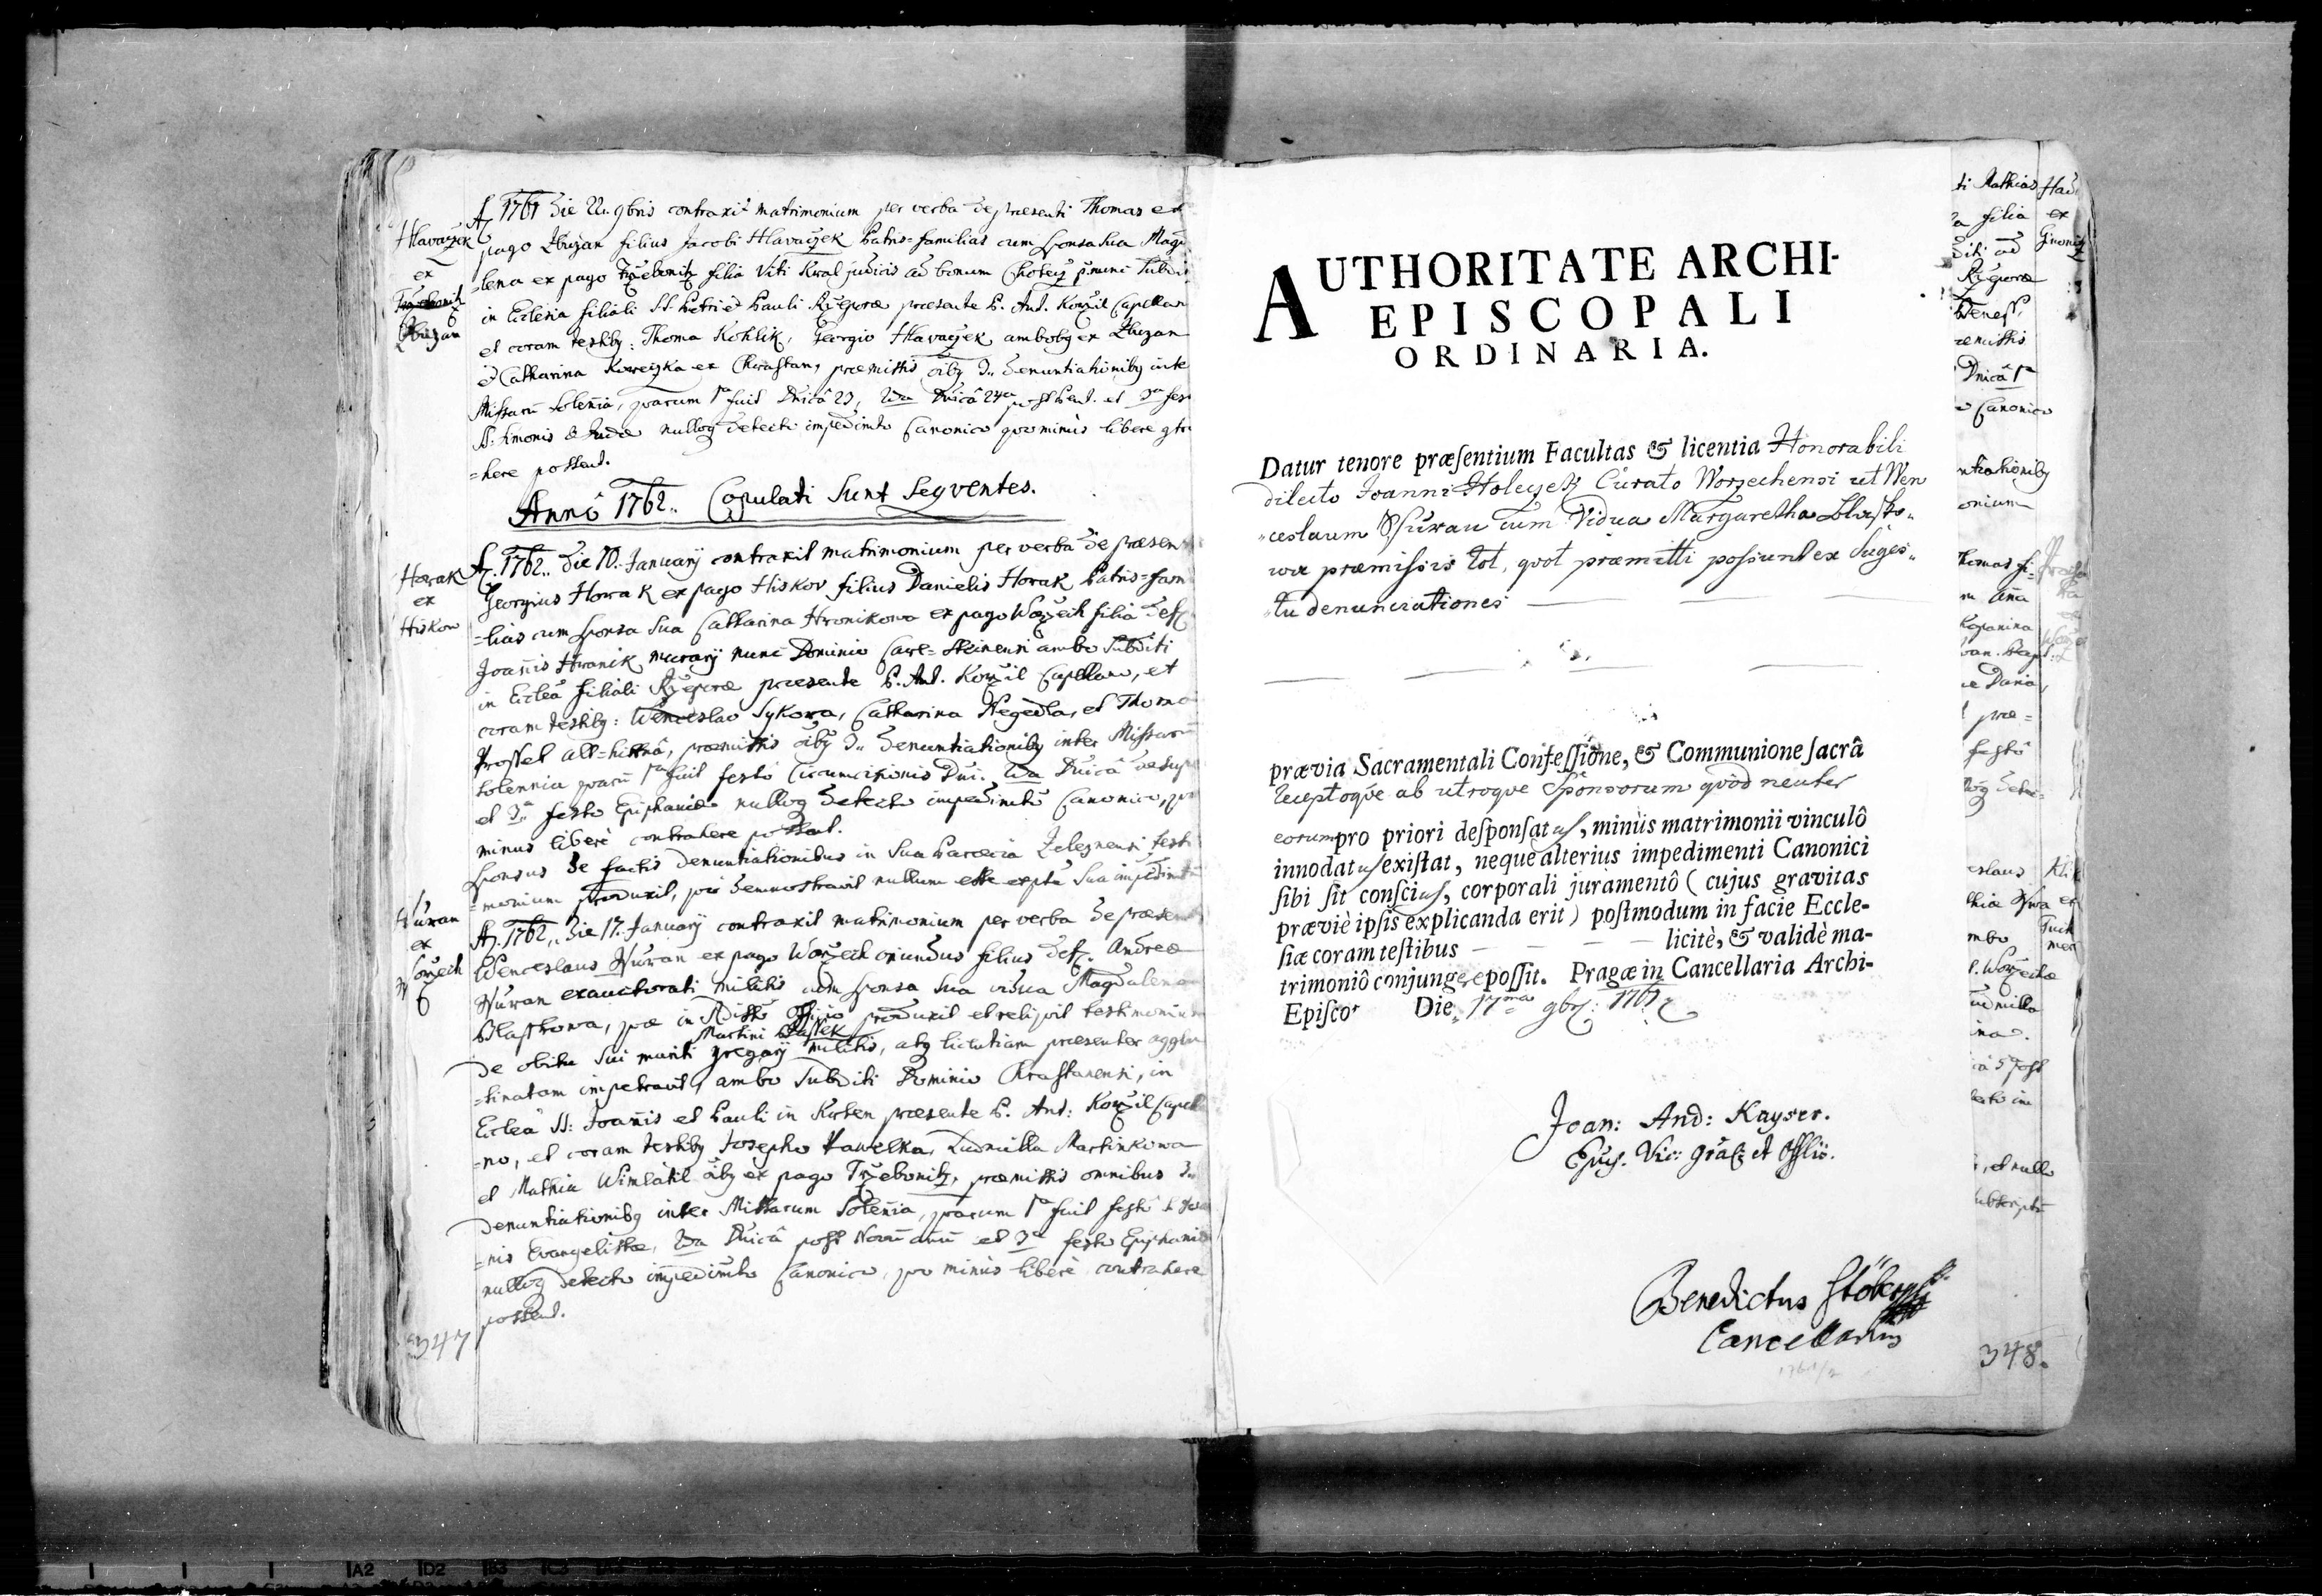 Hlavaczek
ex
Zbuzan
A. 1761 Die 22. 9bris contraxit matrimonium per verba de praesenti Thomas ex
pago Zbuzan filius Jacobi Hlavaczek Patris=familias cum sponsa sua Magda
=lena ex pago Trzebonitz filia Viti Kral judicis ad bonum Chotecz p. nunc Subditi
in Ecclesia filiali SS. Petri et Pauli Rzeporae praesente P. Ant. Korzil Capellan
et coram testibq: Thoma Kohlik, Georgio Hlavaczek ambobq ex Zbuzan
et Catharina ex Chrastan, praemissis oibq 3. Denuntiationibq inter
Missarū Solennia, quarum 1a fuit Dnicâ 23, 2da Dnicâ 24ta post Pent. et 3a festo
SS. Simonis & Judae nullog detecto impedimto Canonico quominùs libere gtra
=here possent.
Annô 1762.. Copulati Sunt Seqventes.
Horak
ex
Hiskow
A. 1762.. Die 10. Januarij contraxit matrimonium per verba de praesen
Georgius Horak ex pago Hiskov filius Danielis Horak Patris=fam
=lias cum sponsa sua Catharina Hronikowa ex pago Worzech filia def.
Joannis Hronik murarij nunc Dominio Carl=Steinensi ambo Subditi
in Ecclea filiali Rzeporae praesente P. Ant. Korzil Capellano, et
coram testibq: Wenceslao Sykora, Catharina Negedla, et Thoma
Prossel all=hittnâ, praemissis oibq 3.. Denuntiationibq inter Missarū
solennia quarū 1a fuit festo Circumcisionis Dni. 2da Dnicâ
et 3a festo Epiphaniae nullog detecto impedimto Canonico, quo
minus liberè contrahere possent.
Sponsus de factis denuntiationibus in sua Paroecia testi
=monium produxit, demonstravit nullum esse ex pte sua impedimtū
Sfuran
ex
Worzech
A. 1762.. Die 17. Januarij contraxit matrimonium per verba de praesen
Wenceslaus Sfuran ex pago Worzech oriundus filius def. Andreae
Sfuran exauctorati militis cum sponsa sua vidua Magdalena
Blastkowa, quae in produxit et reliquit testimonium
Martini
de obitu sui mariti gregarij militis, atq licentiam praesenter agglu
=tinatam impetravit, ambo Subditi Dominio Chrastanensi, in
Ecclea SS: Joannis et Pauli in Krten praesente P. Ant: Korzil Capell
=no, et coram testibq Josepho Pawelka, Ludmilla Martinkowa
et Mathia Wimlatil oibq ex pago Trzebonitz, praemissis omnibus 3.
Denuntiationibq inter Missarum Solennia, quarum 1a fuit festo S. Joan
=nis Evangelistae, 2da Dnicâ post Novū annū et 3a festo Epiphaniae
nullog detecto impedimto Canonico, quo minùs liberè contrahere
possent.
347
AUTHORITATE ARCHI-
EPISCOPALI
ORDINARIA.
Datur tenore præſentium Facultas & licentia Honorabili
dilecto Joanni Holeczek Curato Worzechensi ut Wen
ceslaum Sfuran cum Vidua Margaretha Blasko„
wa præmissis tot, quot præmitti possunt ex Suges„
„tu denunciationes
prævia Sacramentali Confeſſione, & Communione ſacrâ
receptoque ab utroque Sponsorum quòd neuter
eorum pro priori deſponſatus, minùs matrimonii vinculô
innodatus exiſtat, neque alterius impedimenti Canonici
ſibi ſit conſcius, corporali juramentô ( cujus gravitas
præviè ipſis explicanda erit ) poſtmodum in facie Eccle-
ſiæ coram teſtibus licitè, & validè ma-
trimoniô conjungere poſſit. Pragæ in Cancellaria Archi-
Epiſco. Die 17ma 9br: 1761
Joan: And: Kayser.
Epus. Vic: grâl: et Offlis.
Benedictus Stöber
Cancellarius
1761/2
ti Mathias
filia
diti ad
Rzeporae
Wences.
remissis
Dnicâ 1a
Canonico
ntiationibq
onium
Thomas fi=
m Aña
Kopanina
prae=
festô
eslaus
mbo
P. Worzechae
udmilla
, et nullo
ex
348.